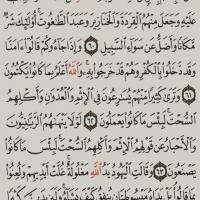 عَلَيْهِ وَجَعَلَ مِنْهُمُ الْقِرَدَةَ وَالْخَنَازِيرَ وَعَبَدَ الطَّاغُوتَ أُوْلَٰئِكَ شَرٌّ
مَّكَانًا وَأَضَلُّ عَن سَوَاءِ السَّبِيلِ ٦٠ وَإِذَا جَاءُوكُمْ قَالُوا ءَامَنَّا
وَقَد دَّخَلُوا بِالْكُفْرِ وَهُمْ قَدْ خَرَجُوا بِهِ وَاللَّهُ أَعْلَمُ بِمَا كَانُوا يَكْتُمُونَ
٦١ وَتَرَىٰ كَثِيرًا مِّنْهُمْ يُسَارِعُونَ فِي الْإِثْمِ وَالْعُدْوَانِ وَأَكْلِهِمُ
السُّحْتَ لَبِئْسَ مَا كَانُوا يَعْمَلُونَ ٦٢ لَوْلَا يَنْهَاهُمُ الرَّبَّانِيُّونَ
وَالْأَحْبَارُ عَن قَوْلِهِمُ الْإِثْمَ وَأَكْلِهِمُ السُّحْتَ لَبِئْسَ مَا كَانُوا
يَصْنَعُونَ ٦٣ وَقَالَتِ الْيَهُودُ يَدُ اللَّهِ مَغْلُولَةٌ غُلَّتْ أَيْدِيهِمْ وَلُعِنُوا